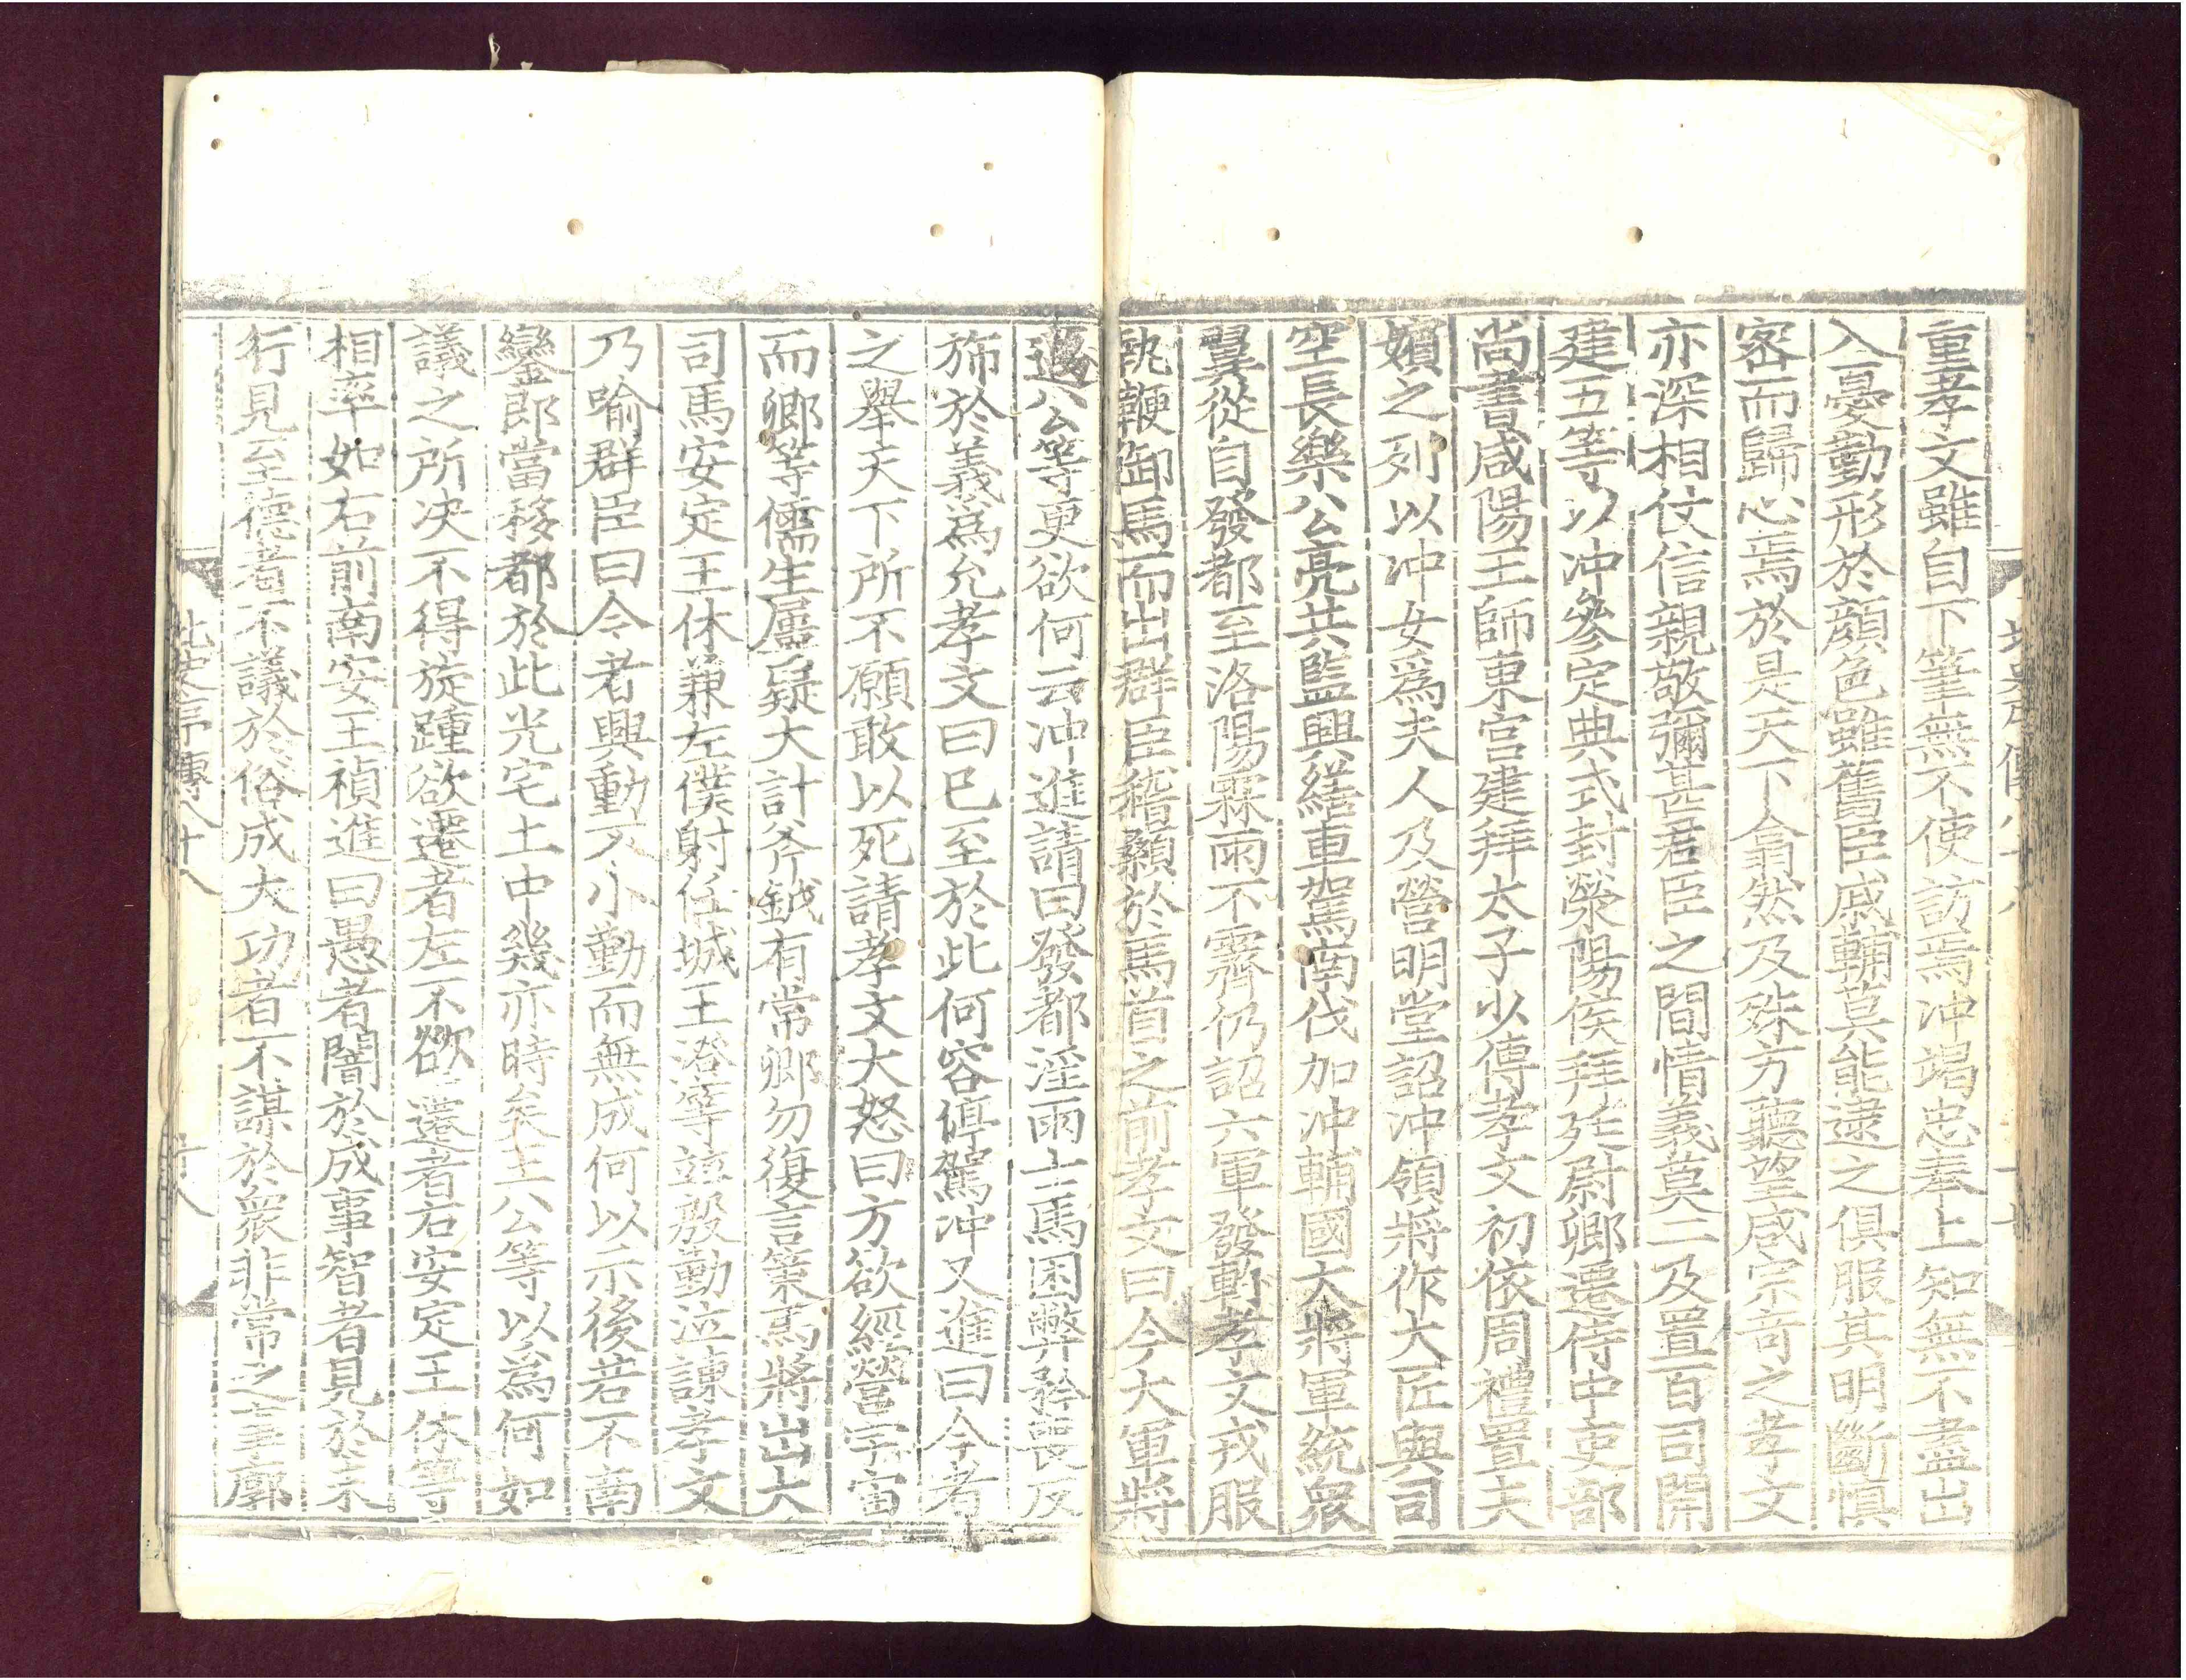 重孝文雖自下筆無不使訪焉沖竭忠奉上知無不盡出
入憂勤形於顔色雖舊臣戚輔莫能逮之俱服其明斷愼
密而歸心焉於是天下翕然及殊方聽望咸宗奇之孝文
亦深相仗信親敬彌甚君臣之間情義莫二及置百司開
建五等以沖參定典式封滎陽侯拜廷尉卿遷侍中吏部
尚書咸陽王師東宮建拜太子少傅孝文初依周禮置夫
嬪之列以沖女爲夫人及營明堂詔沖領將作大匠與司
空長樂公亮共監興繕車駕南伐加沖輔國大將軍統衆
翼從自發都至洛陽霖雨不霽仍詔六軍發軫孝文戎服
執鞭御馬而出群臣稽顙於馬首之前孝文曰今大軍將
邁公等更欲何云沖進請曰發都淫雨士馬困弊矜喪反
旆於義爲允孝文曰已至於此何容停駕沖又進曰今者
之舉天下所不願敢以死請孝文大怒曰方欲經營宇宙
而卿等儒生屢疑大計斧鉞有常卿勿復言策馬將出大
司馬安定王休兼左僕射任城王澄等並殷勤泣諫孝文
乃喻群臣曰今者興動不小動而無成何以示後若不南
鑾即當移都於此光宅土中幾亦時矣王公等以爲何如
議之所決不得旋踵欲遷者左不欲遷者右安定王休等
相率如右前南安王禎進曰愚者闇於成事智者見於未
行見至德者不議於俗成大功者不謀於衆非常之事廓
北史序傳八十八
十八